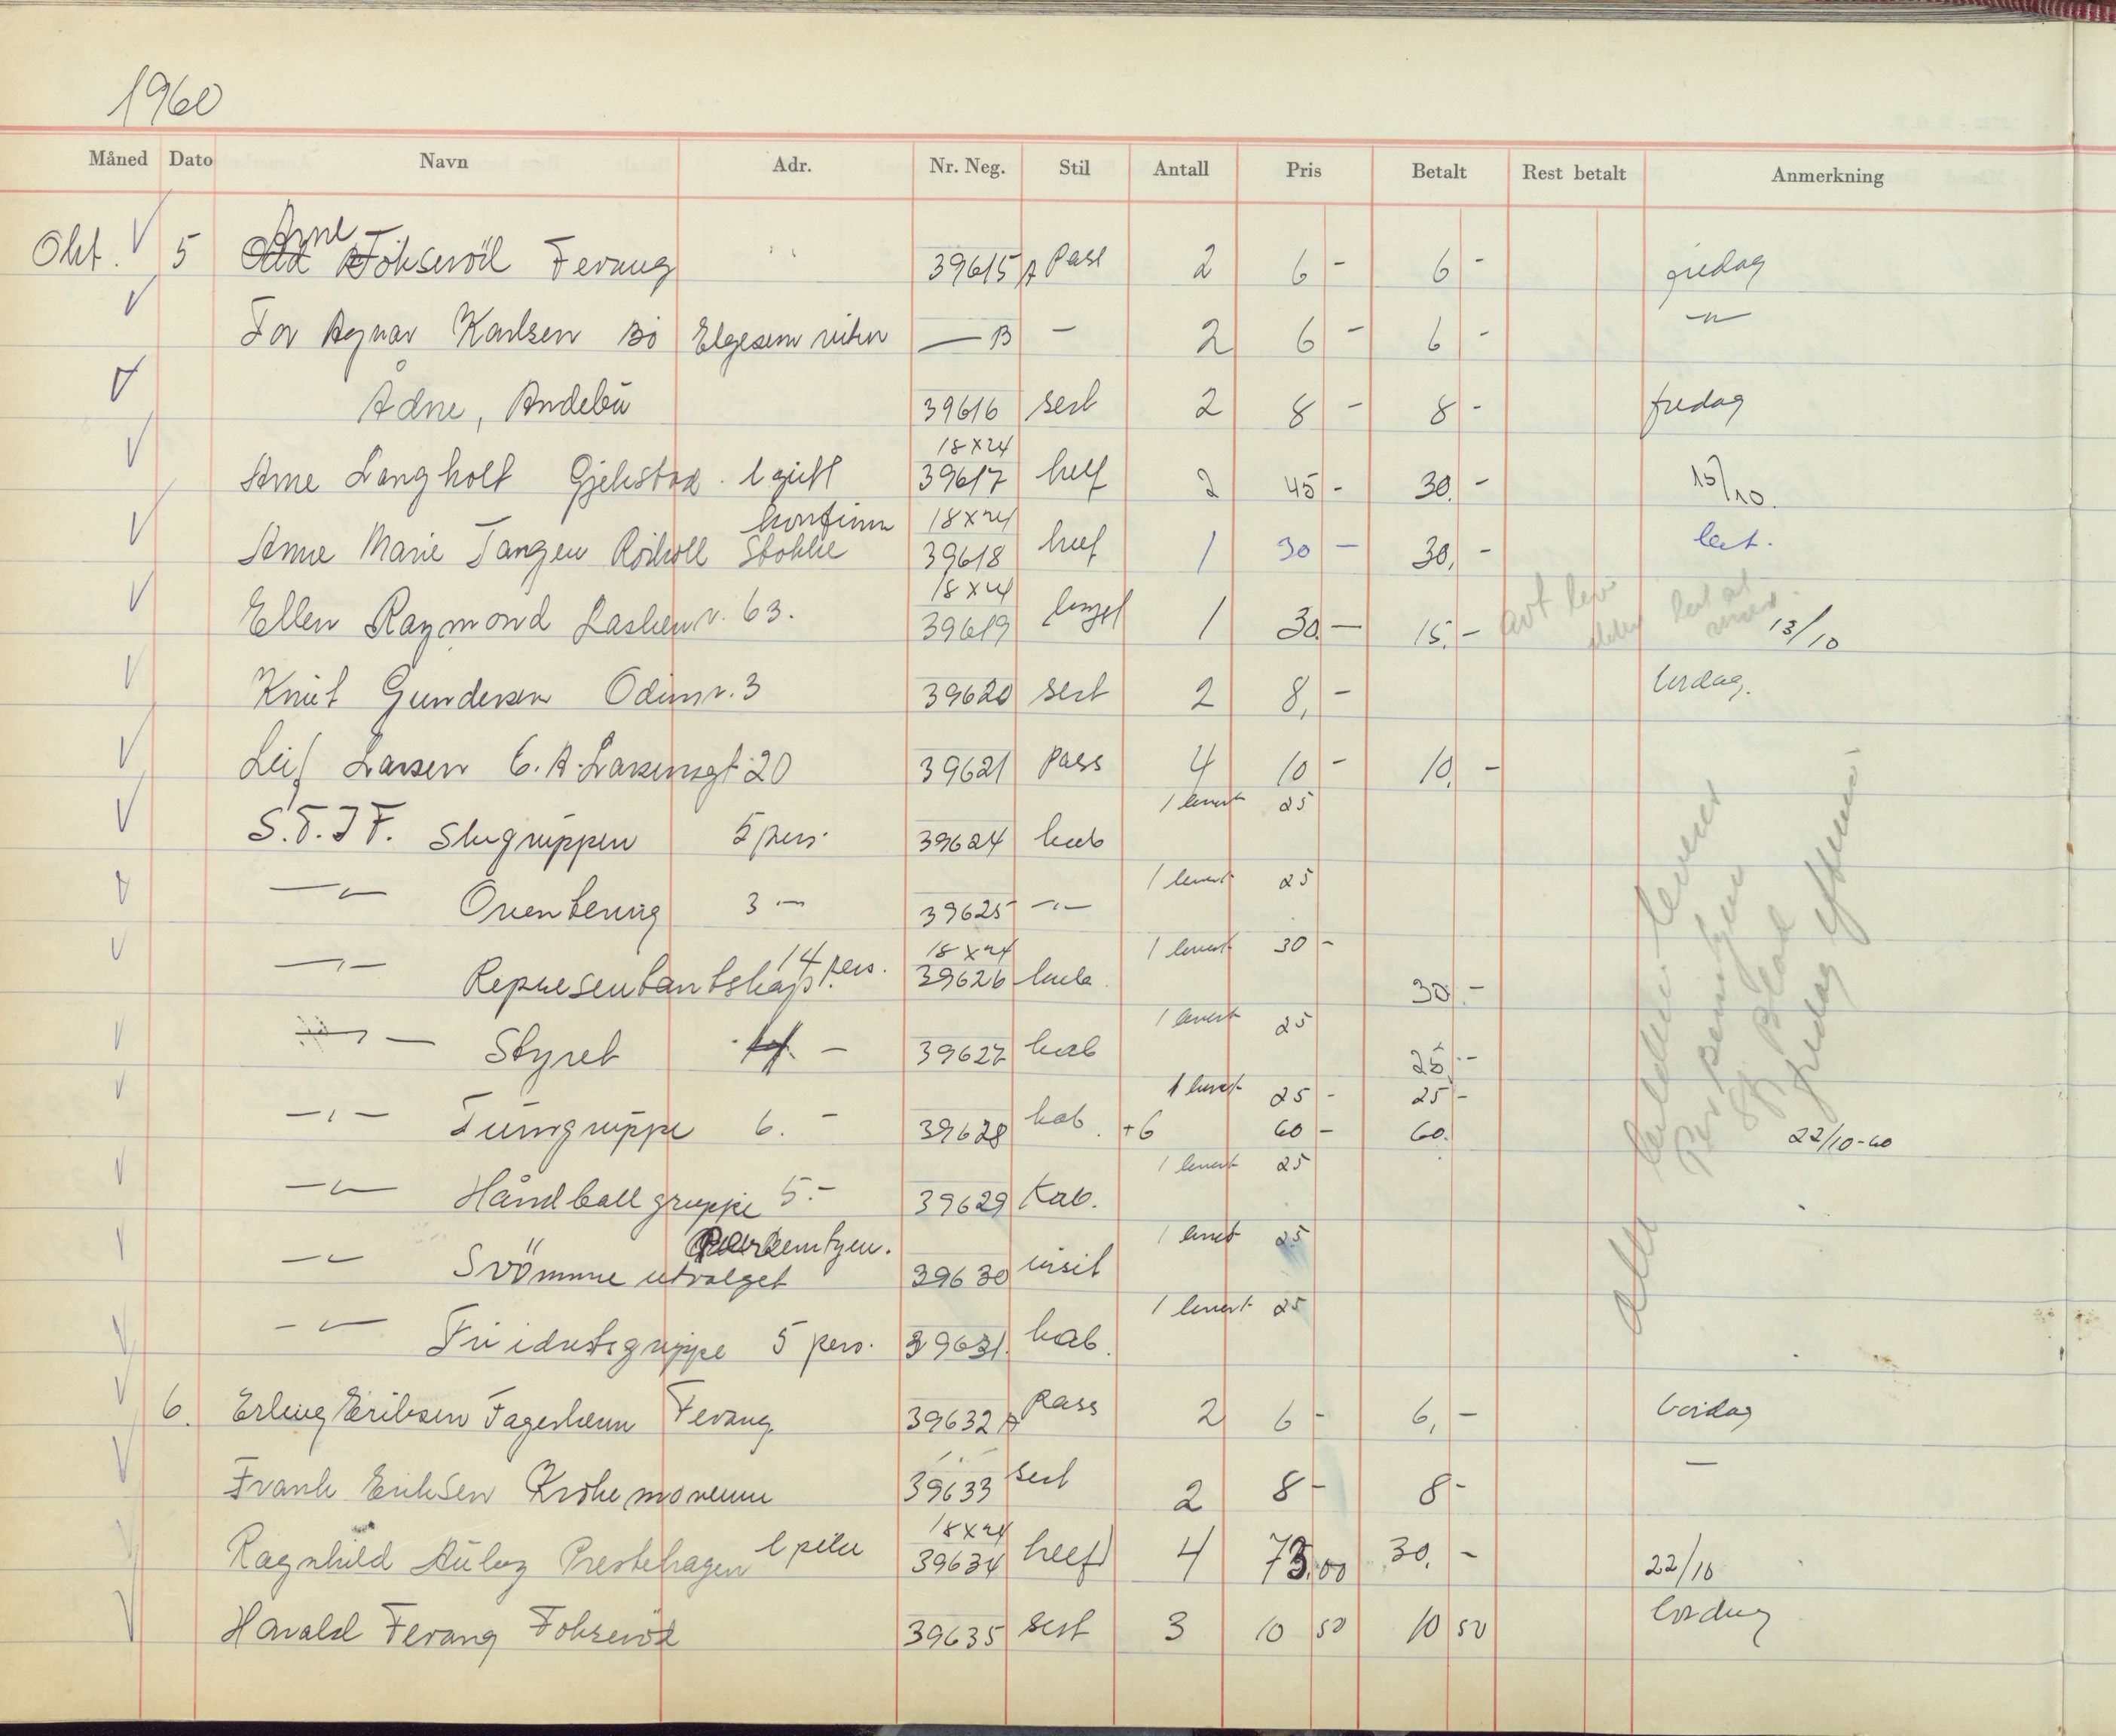 1960
Måned Dato Navn Adr. Nr. Neg. Stil Antall Pris Betalt Rest betalt Anmerkning
Arne
Okt. 5 Fokseröd Fevang 39615 A Pass 2 6 - 6 - fredag
Tor Agnar Karlsen Elgesem 13 - 2 6 - 6 - -"-
Ådne, Andebu 39616 sert 2 8 - 8 - fredag
18x24
Arne Langholt Gjekstad 39617 2 45 - 30. - 15/10.
konfirm 18x24
Anne Marie Tangen Stokke 39618 1 30 - 30, -
18x24
Ellen Raymond 63. 39619 1 30. - 15. - 13/10
Knut Gundersen Odinsv. 3 39620 sert 2 8, - lördag.
Leif Larsen C.A. Larsensgt 20 39621 Pass 4 10 - 10. -
1 levert 25
S.T.I F. Skigruppen 5 pers. 39624 kab
1 levert 25
-"- Orientering 3 -"- 39625 -"-
14 pers. 18x24 1 levert 30 -
-"- Representantskap. 39626 30 -
1 levert 25
-"- Styret - 39627 kab 25 -
1 levert 25 - 25 -
-"- Turngruppe 6. - 39628 kab. +6 60 - 60. 22/10-60
1 levert 25
-"- Håndballgruppe 5. - 39629 Kab.
1 levert 25
-"- Svömme utvalget 39630 visit
1 levert 25
-"- Fri idretsgruppe 5 pers. 39631. kab.
6. Erling Eriksen Fagerheim Fevang 39632 A Pass 2 6 - 6, - lördag
Frank Eriksen Krokemoveien 39633 sert 2 8 - 8 - -
18x24
Ragnhild Prestehagen 39634 4 30. - 22/10
Harald Fevang Fokseröd 39635 sert 3 10 50 10 50 lördag
fredag